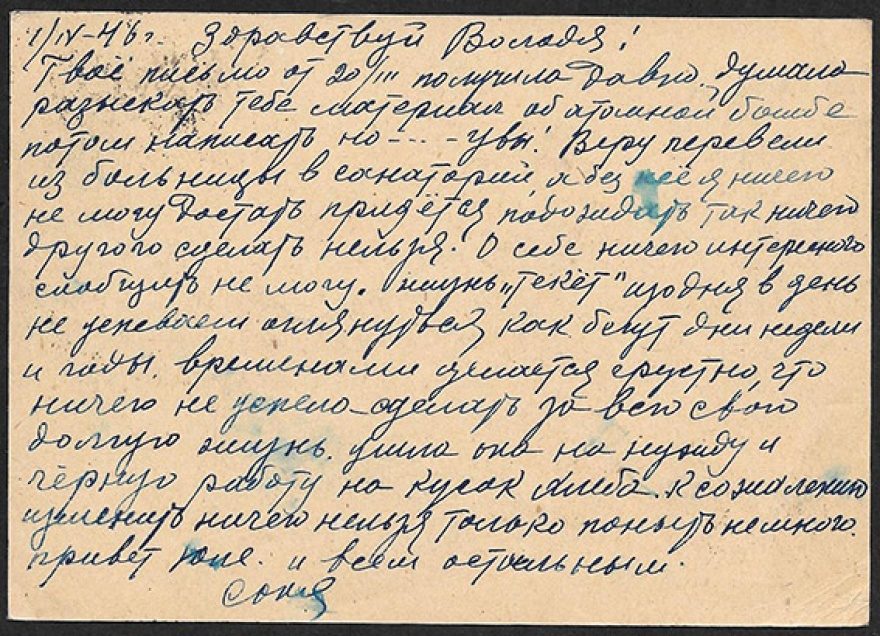 1/IV-46г. Здравствуй Володя!
Твоё письмо от 20/III получила давно, думала
разыскать тебе материал об атомной бомбе
потом написать но - - - - увы! Веру перевели
из больницы в санаторий, а без неё я ничего
не могу достать придётся подождать так ничего
другого сделать нельзя. О себе ничего интересного
сообщить не могу. жизнь "течёт" изодня в день
не успеваем оглянуться как бегут дни недели
и годы. временами делается грустно, что
ничего не успело сделать за всю свою
долгую жизнь. ушла она на нужду и
чёрную работу на кусок хлеба. к сожалению
изменить ничего нельзя только поныть немного.
привет и всем остальным.
Соня